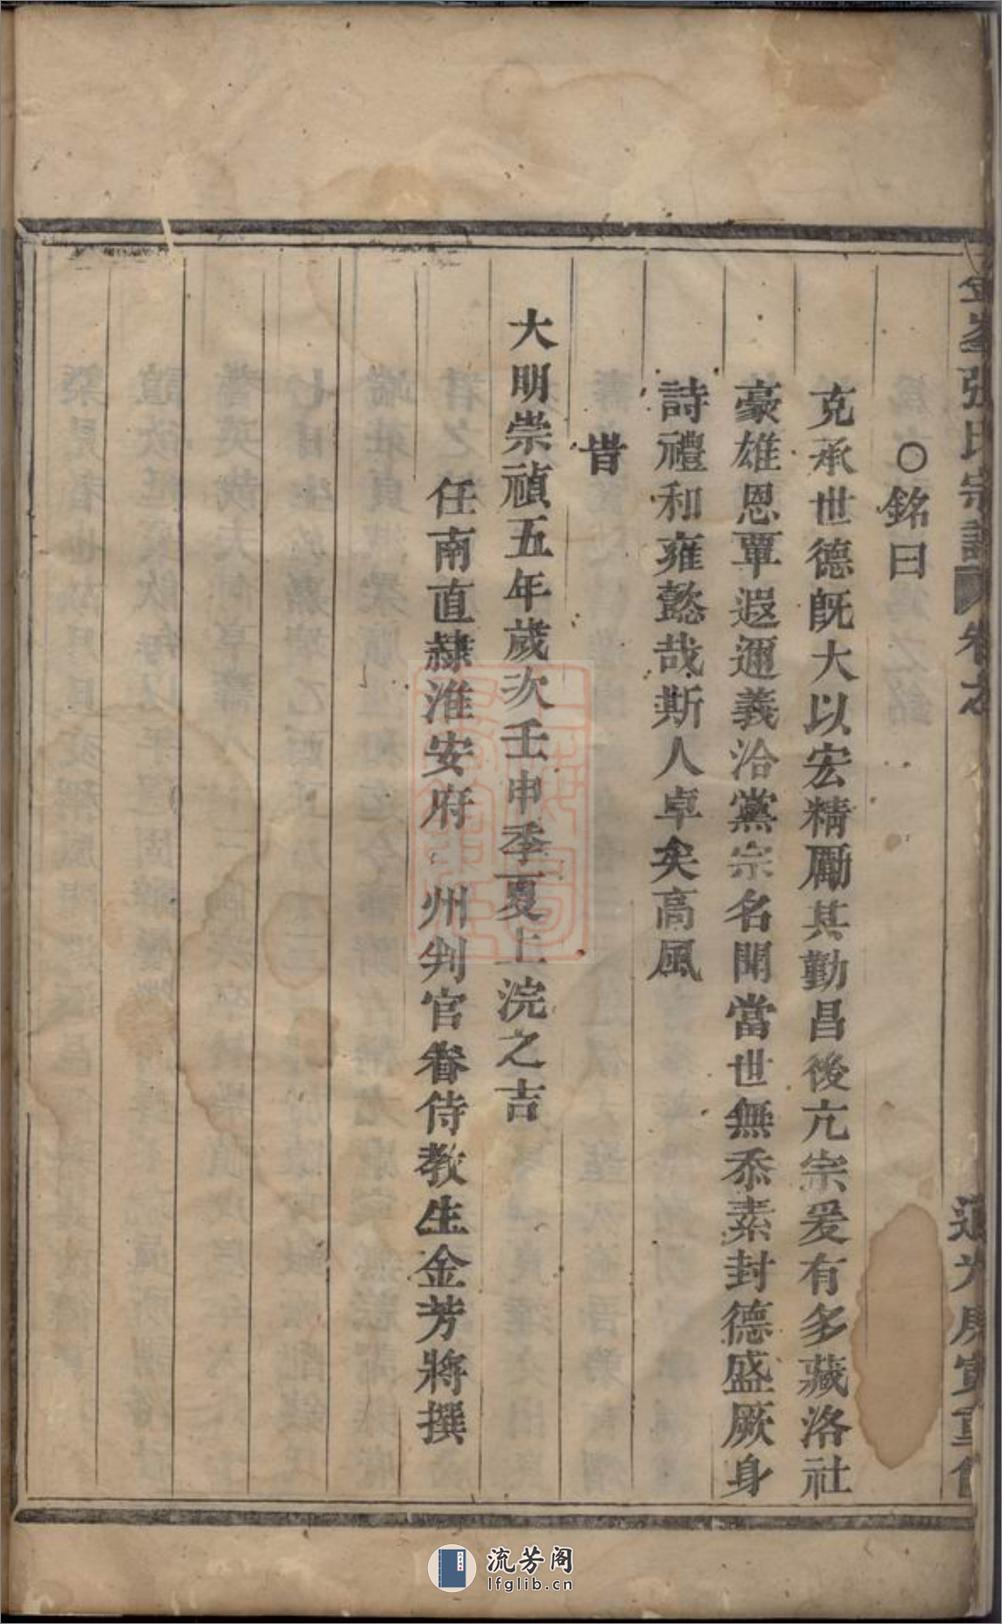 峯張氏宗譜 卷之
道光庚寅重修
○銘曰
克承世德旣大以宏精勵其勤昌後亢宗爰有多藏洛社
豪雄恩覃遐邇義洽黨宗名聞當世無忝素封德盛厥身
詩禮和雍懿哉斯人卓矣高風
旹
大明崇禎五年歲次壬申季夏上浣之吉
任南直隸淮安府 州判官眷侍教生金芳將撰
流芳阁
lfglib.cn